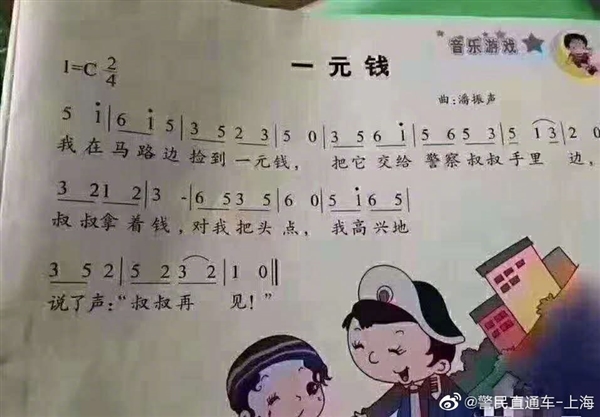 音乐游戏
1=C 2/4
一元钱
曲:潘振声
5 i|6 i 5|3 5 2 3|5 0|3 5 6 i|5 6 5 3|5 1 3|2 0
我在马路边捡到一元钱，把它交给警察叔叔手里边，
3 2 1 2|3 -|6 5 3 5|6 0|5 i 6 5|
叔叔拿着钱，对我把头点，我高兴地
3 5 2|5 2 3 2|1 0‖
说了声:“叔叔再见！”
@警民直通车-上海